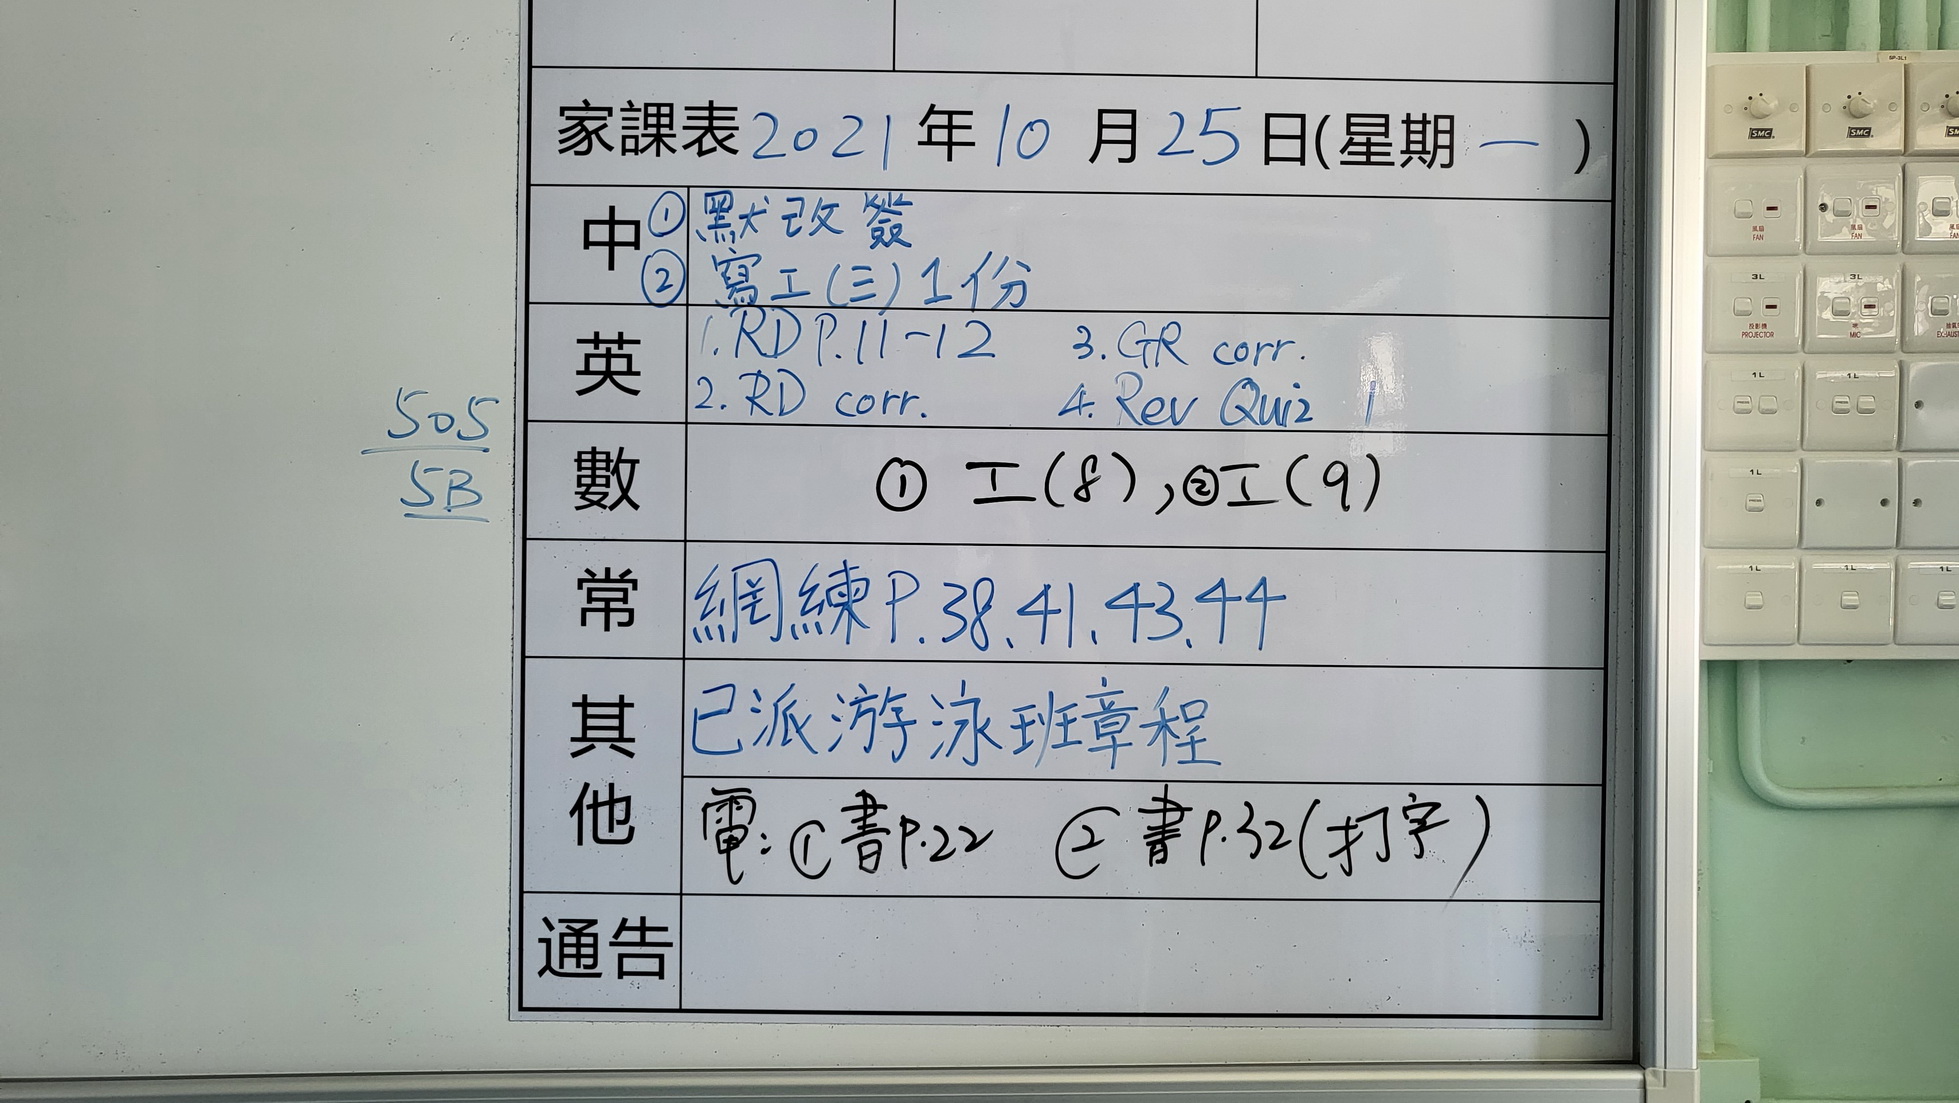 家課表2021年10月25日(星期一)
中 ①默改簽
②寫工(三)1份
英 1.RD P.11-12 3.GR corr.
2.RD corr. 4.Rev Quiz 1
505
5B
數 ①工(8),②工(9)
常 網練P.38、41、43、44
其他 已派游泳班章程
電:①書P.22 ②書P.32(打字)
通告
SP-3L1
SMC SMC SM
風扇 FAN 風扇 FAN
3L 3L
投影機 PROJECTOR MIC
1L 1L
1L
1L 1L 1L